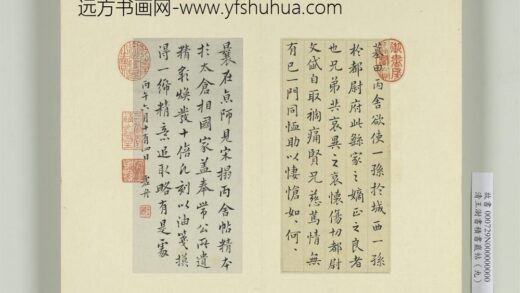 远方书画网-www.yfshuhua.com
墓田丙舍欲使一孫於城西一孫
於都尉府此繇家之嫡正之良者
也兄弟共哀異之哀懷傷切都尉
文岱自取禍痛賢兄慈篤情無
有已一門同恤助以悽愴如〻何〻
曩在京師見宋搨丙舍帖精本
於太倉相國家蓋奉常公所遺
精彩煥發十倍凡刻以油箋橅
得一紙精意追取略有是處
丙午六月十有四日 虛舟
故書 000729N000000000
清王澍書積書巖帖(九)